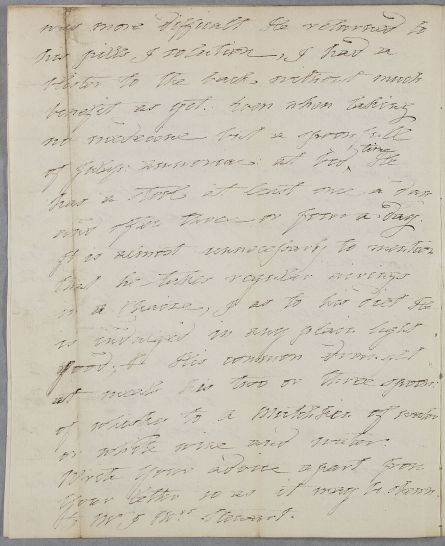 was more difficult He returned to
his pills & solution, & had a
blister to the back without much
benefit as yet. Even when taking
no medicine but a spoonfull
of Julep: ammoniac: at bed time He
has a stool at least once a day
and often three or four a day.
It is almost unnecessary to mention
that he takes regular airings
in a chaise, & as to his diet He
is indulged in any plain light
food. His common drink
at meals is two or three spoon:
of whisky to a Mutchkin of water
or white wine and water.
Write your advice apart from
your letter so as it may be shown
to Mr & Mrs Stewart.